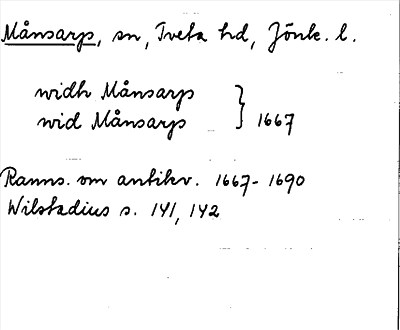 Månsarp, sn, Tveta hd, Jönk. l.
widh Månsarp
wid Månsarp } 1667
Ranns. om antikv. 1667-1690
Wilstadius s. 141, 142